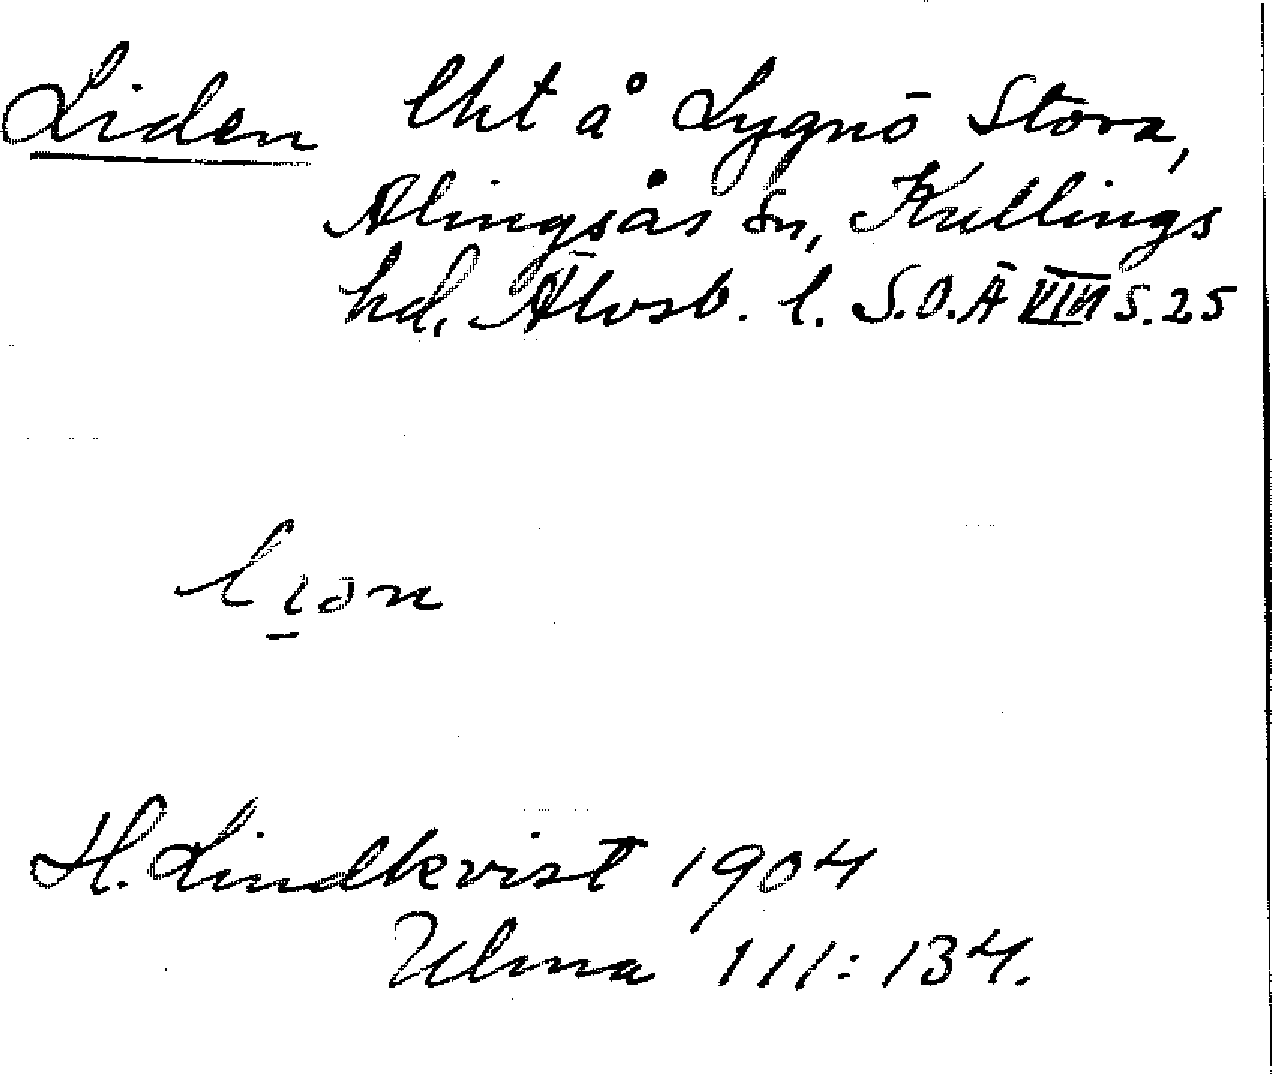 Liden lht å Lygnö Stora,
Alingsås sn, Kullings
hd, Älvsb. l. S.O.Ä VIII s. 25
H. Lindkvist 1904
Ulma 111:134.